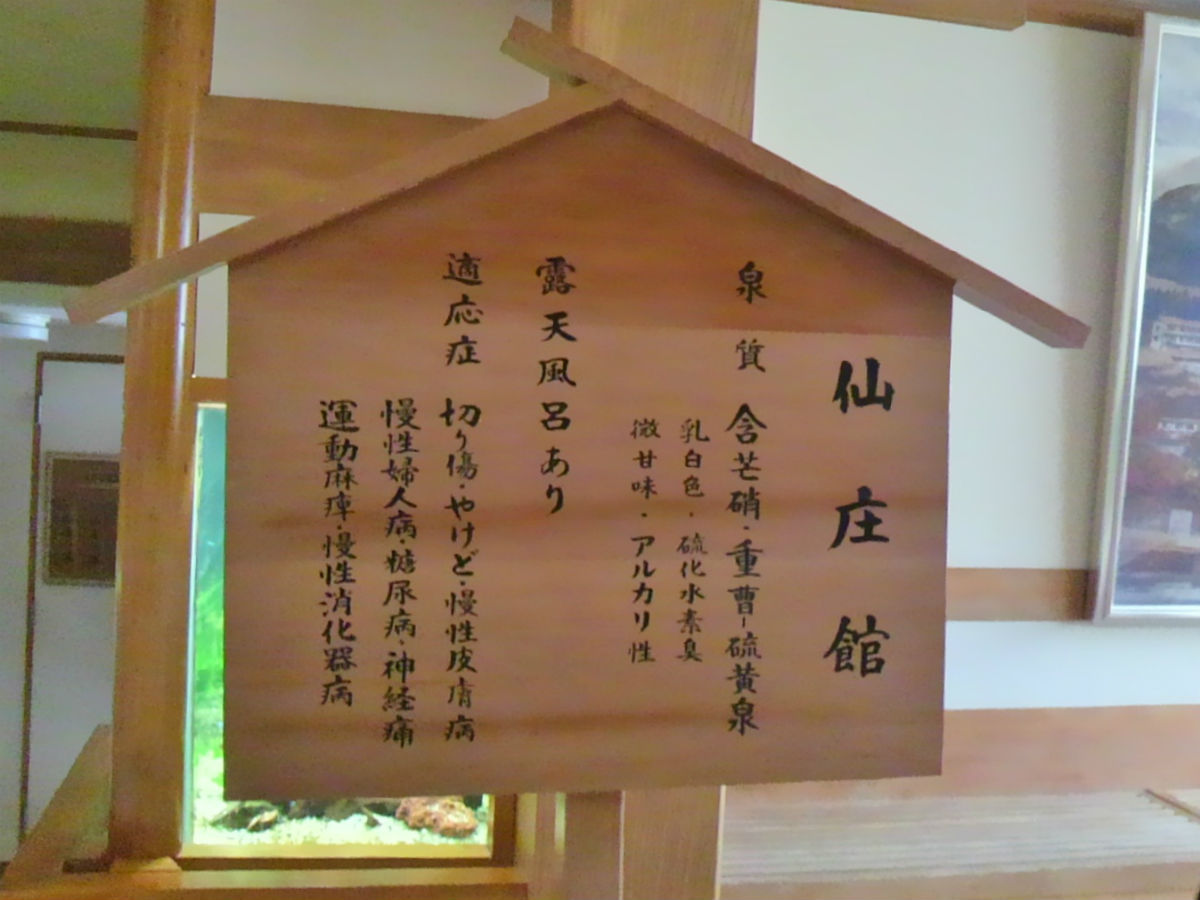 仙庄館
泉質 含芒硝・重曹-硫黄泉
乳白色・硫化水素臭
微甘味・アルカリ性
露天風呂あり
適応症 切り傷・やけど・慢性皮膚病
慢性婦人病・糖尿病・神経痛
運動麻痺・慢性消化器病